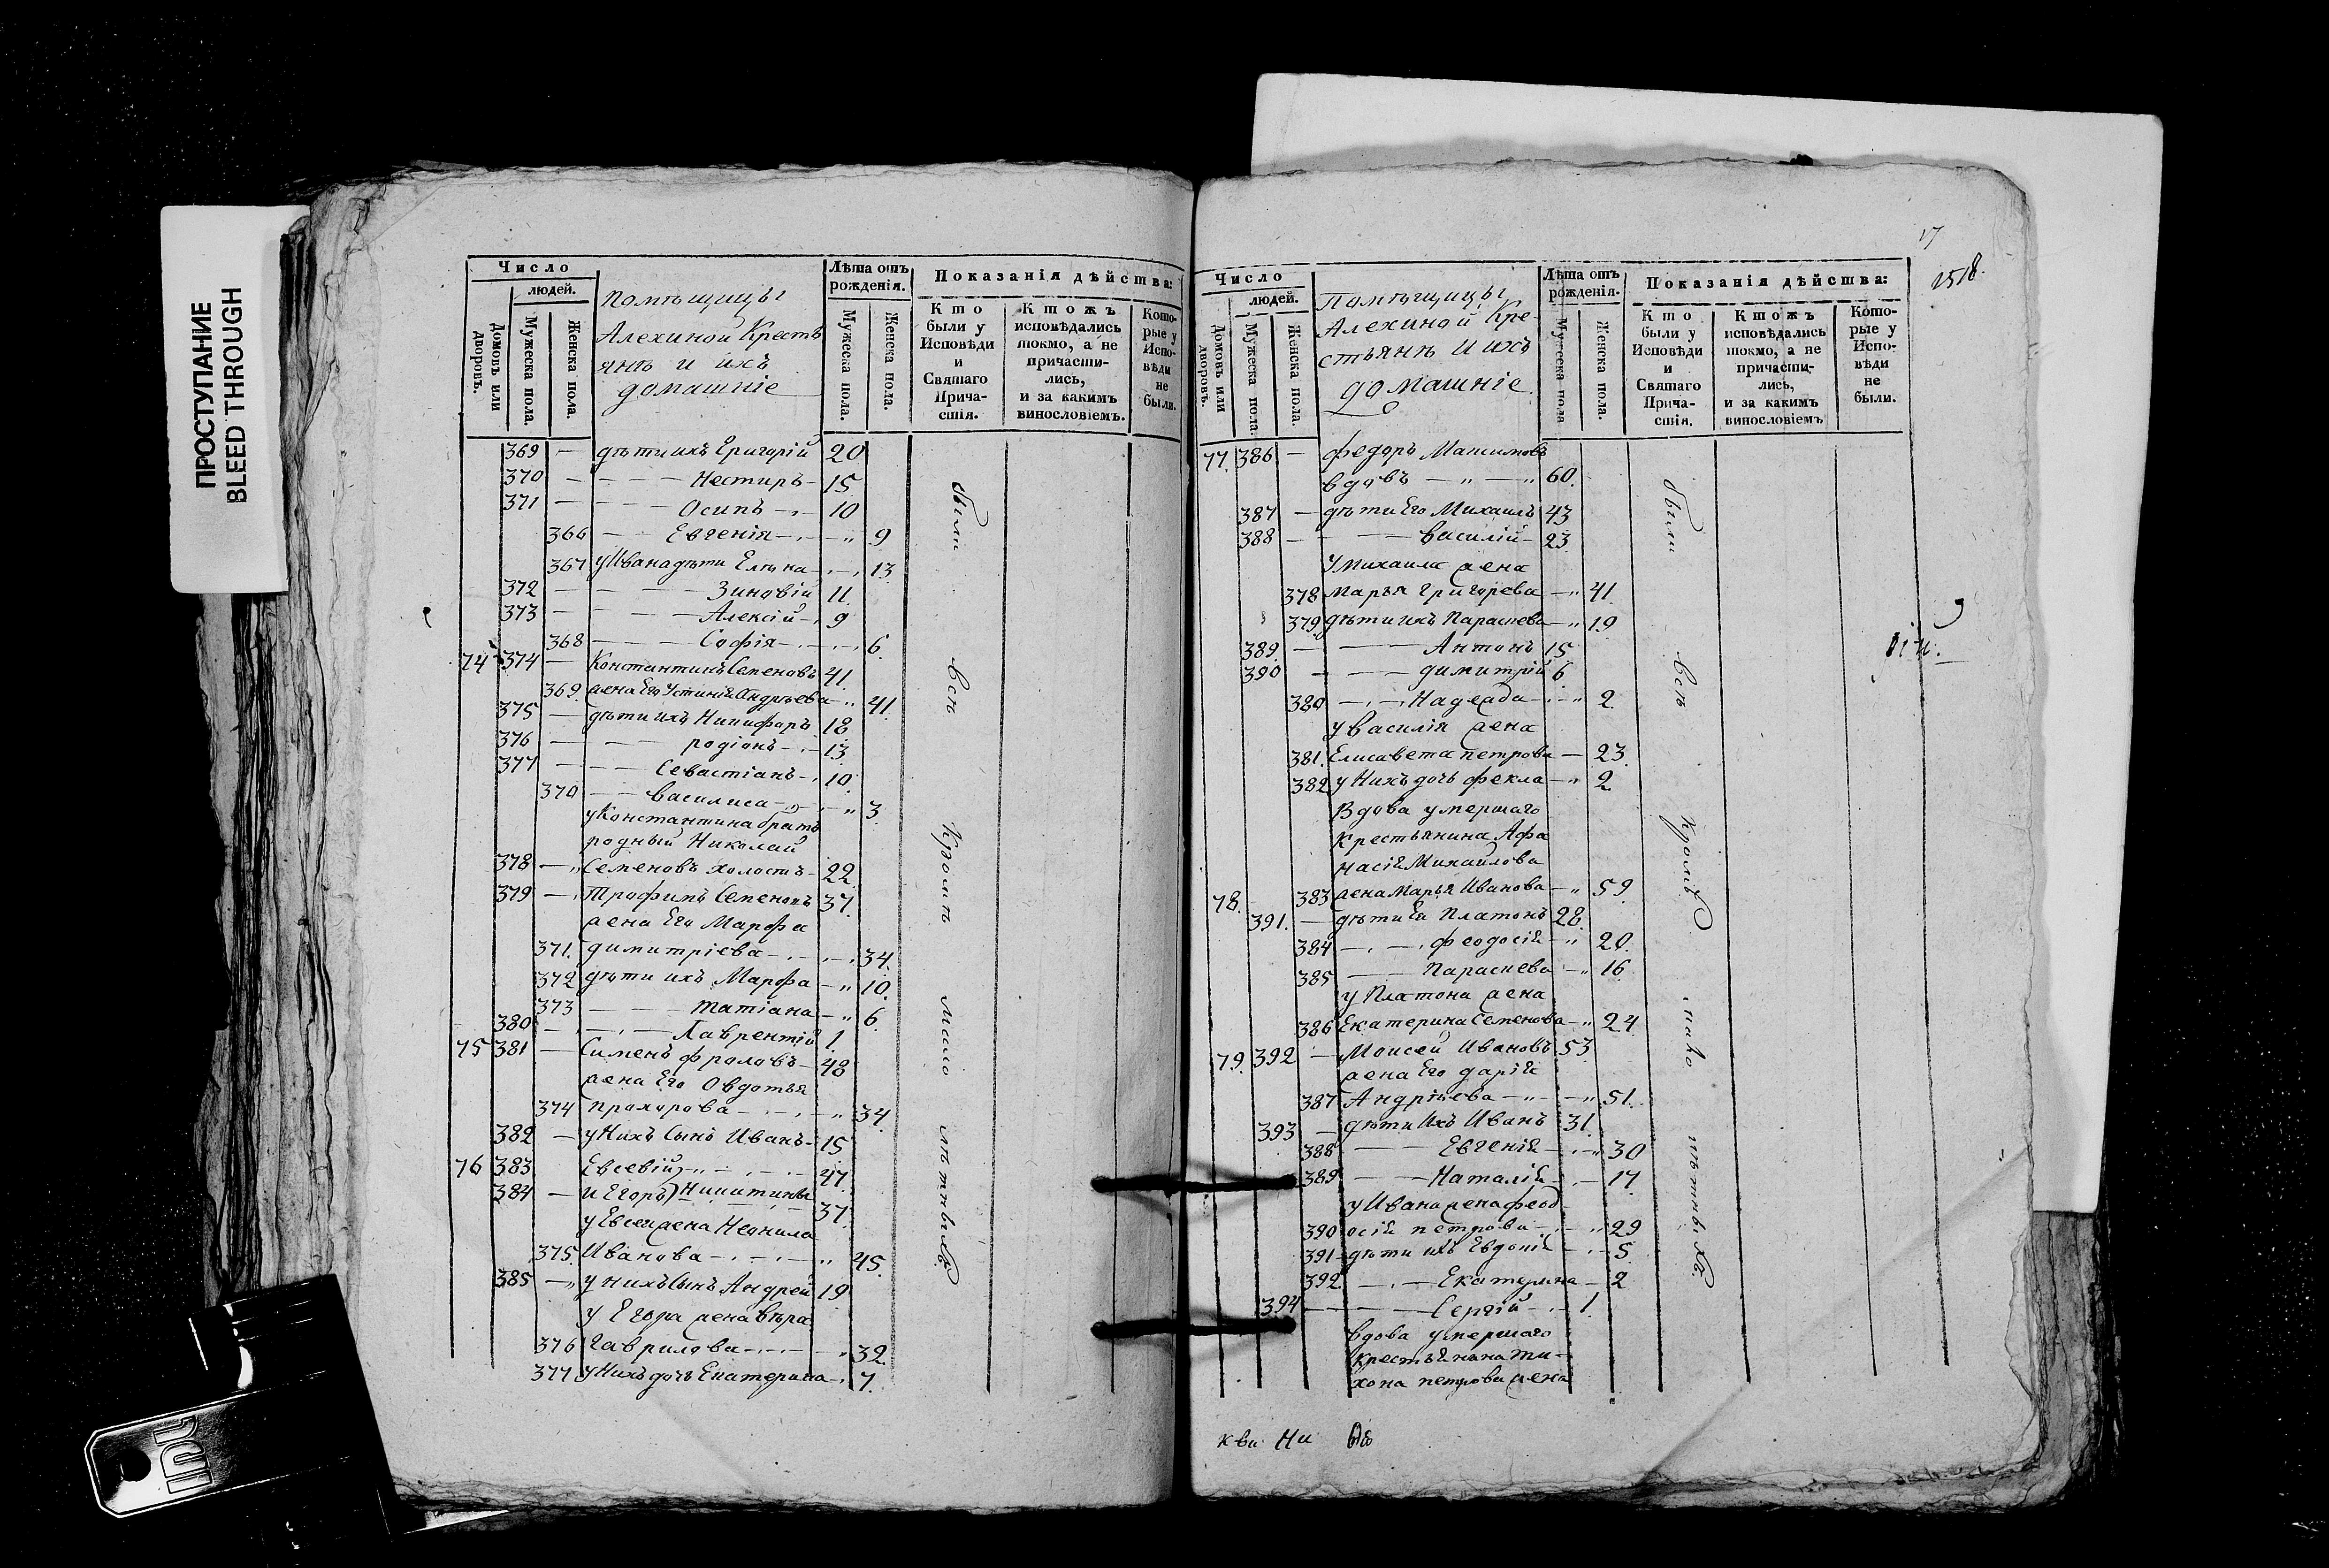 ПРОСТУПАНИЕ
BLEED THROUGH
Число
людей.
Домовъ или дворовъ.
Мужеска пола.
Женска пола.
Помѣщицы
Алехиной Кресть
янъ и ихъ
домашніе
Лѣта отъ рожденія.
Мужеска пола.
Женска пола.
Показанія дѣйства:
Кто были у Исповѣди и Святаго Прича-стія.
Ктожъ исповѣдались токмо, а не причасти-лись, и за какимъ винословіемъ.
Кото-рые у Испо-вѣди не были.
369 — дѣти ихъ Григорій 20
370 — — — — Нестиръ — 15
371 — — — Осипъ — 10
366 — — Евгенія — " 9
367 у Ивана дѣти Елѣна — 13.
372 — — — — Зиновій 11.
373 — — — — Алексій — 9
368 — — — Софія — 6.
74 374 — Константинъ Семеновъ 41.
369. жена Его Устинія Андрѣева — " 41.
375 — дѣти ихъ Никифоръ 18
376 — — — родіонъ — 13.
377 — — — Севастіанъ — 10.
370 — — василиса — " 3.
у Константина братъ
родный Николай
378 — " Семеновъ холостъ — 22.
379 — Трофимъ Семеновъ 37.
жена Его Марфа
371. димитріева — 34.
372 дѣти ихъ Марфа — " 10.
373 — — — татіана — " 6.
380 — — — Лаврентій 1.
75 381 — Сименъ фроловъ — 48
жена Его Овдотья
374 прохорова — " 34.
382 — у Нихъ Сынъ Иванъ — 15
76 383 Евсевій — " — 47.
384 — и Егоръ) Никитины 37.
у Евсея жена Неонила
375. Иванова — " 45.
385 — " у нихъ Сынъ Андрей 19
у Егора жена вѣра
376 Гаврилова — " 32.
377 у Нихъ дочь Екатерина — 7.
были всѣ кромѣ мало лѣтныхъ
17
Число
людей.
Домовъ или дворовъ.
Мужеска пола.
Женска пола.
Помѣщицы
Алехиной Кре-
стьянъ и ихъ
домашніе
Лѣта отъ рожденія.
Мужеска пола
Женска пола.
Показанія дѣйства:
Кто были у Исповѣди и Святаго Прича-стія.
Ктожъ исповѣдались токмо, а не причасти-лись, и за какимъ винословіемъ
Кото-рые у Испо-вѣди не были.
77. 386 — федоръ Максимовъ
вдовъ — " — " 60.
387 — дѣти Его Михаилъ 43
388 — — — василій — 23.
У Михаила жена
378 марья григорьева — " 41.
379 дѣти ихъ Параскева — " 19.
389. — — — Антонъ 15
390 — — — димитрій 6
380 — — Надежда — " 2.
у василія жена
381. Елисавета петрова — 23.
382 у Нихъ дочь фекла — " 2
Вдова умершаго
крестьянина Афа
насія Михайлова
78. 383 жена Марья Иванова — " 59.
391. — дѣти Ея Платонъ 28.
384 — — феодосія — " 20.
385 — — Параскева — " 16.
у Платона жена
386 Екатерина Семенова — " 24.
79. 392 — Моисей Ивановъ 53.
жена Его дарія
387 Андрѣева — " — " 51.
393 — дѣти Ихъ Иванъ 31.
388 — — Евгенія — " 30
389 — — Наталія — 17.
у Ивана жена феод
390 осія петрова — " 29
391 — дѣти ихъ Евдокія — 5.
392 — — Екатерина — 2
394 — — — Сергій — 1.
вдова умершаго
крестьянина ти-
хона петрова жена
были всѣ кромѣ мало лѣтныхъ.